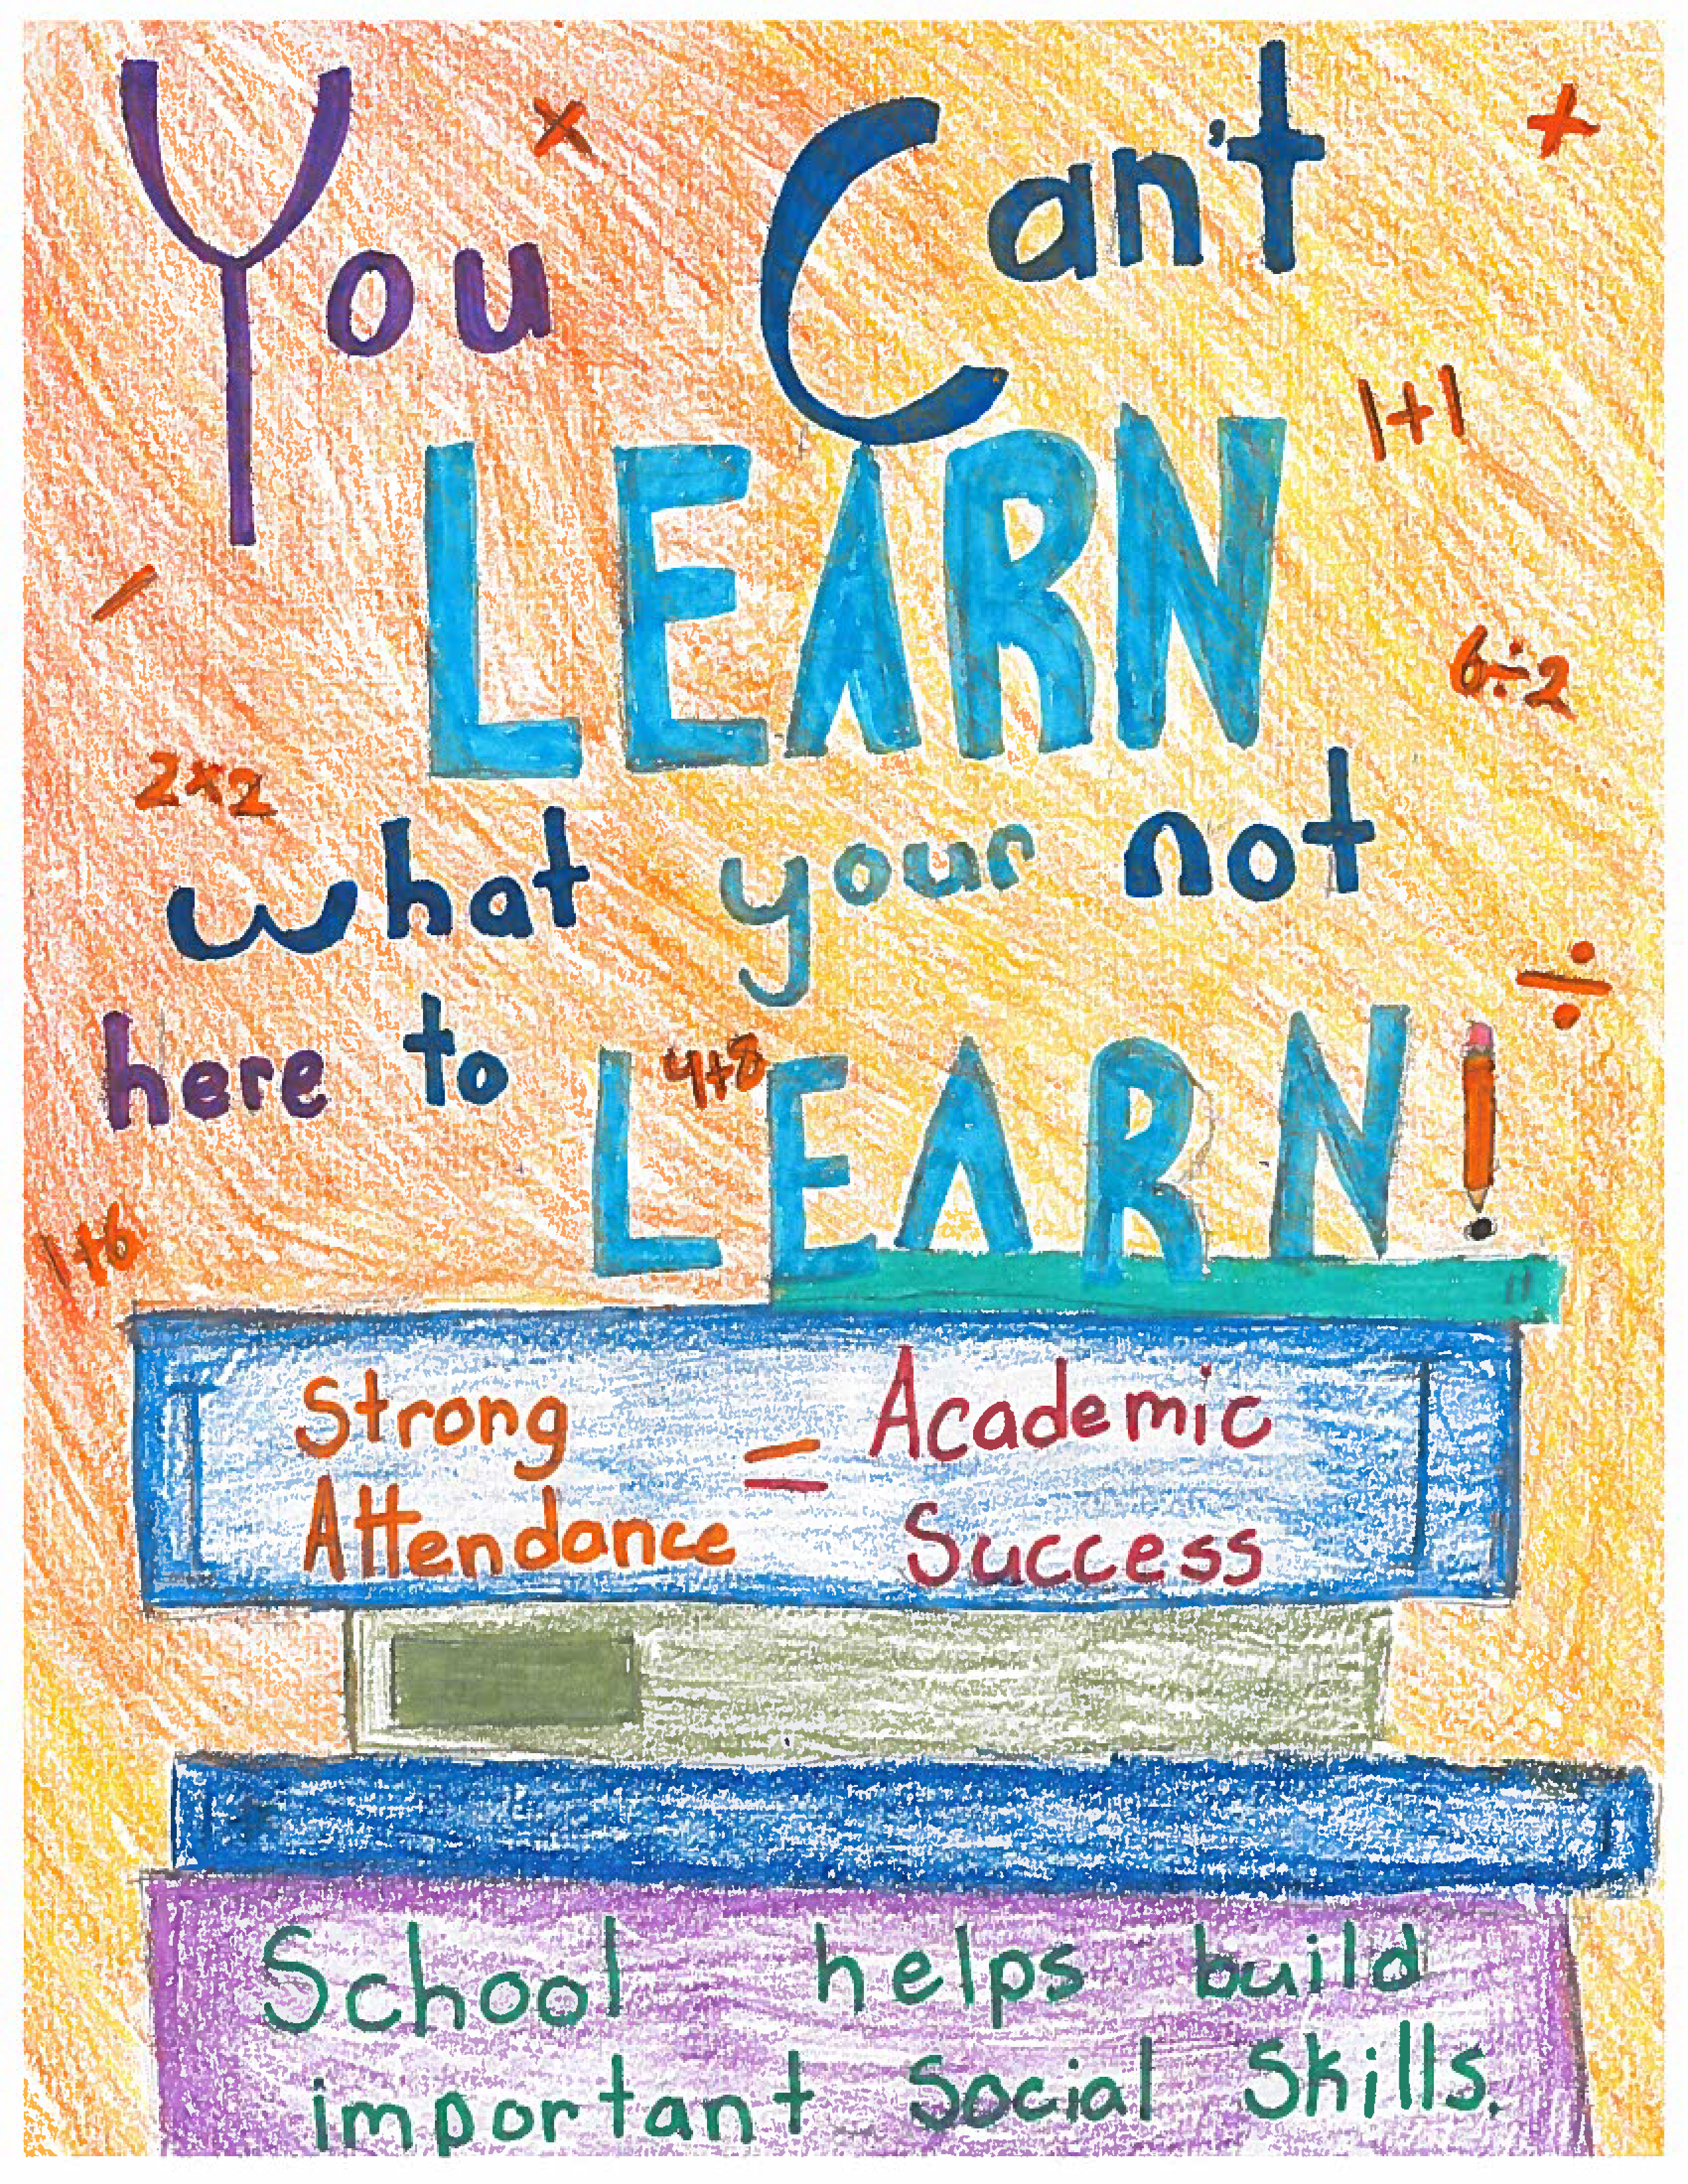 You Can't
×
+
1+1
LEARN
–
6÷2
2×2
what your not
÷
here to LEARN!
4+8
1+6
Strong
Attendance
=
Academic
Success
School helps build
important Social Skills.